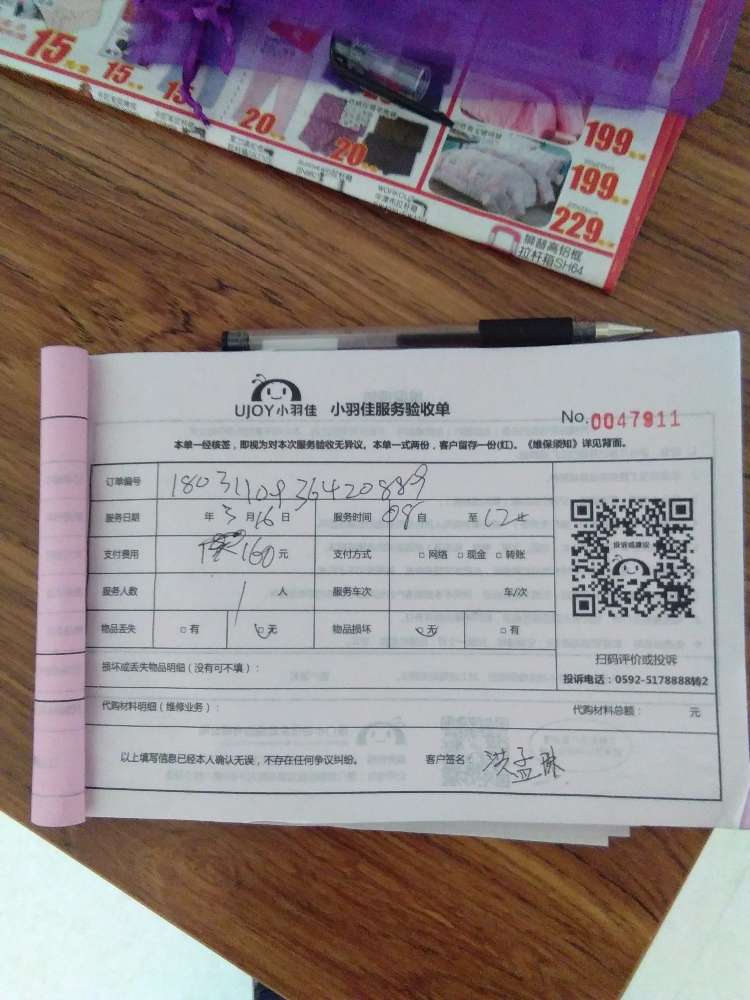 15
15
15
20
20
199
199
229
狮普高铝框
拉杆箱SH64
UJOY小羽佳 小羽佳服务验收单
No.0047911
本单一经核签，即视为对本次服务验收无异议。本单一式两份，客户留存一份(红)。《维保须知》详见背面。
订单编号 1803110936420889
服务日期 年 3 月 16 日 服务时间 08 自 至 12
支付费用 160 元 支付方式 □ 网络 □ 现金 □ 转账
服务人数 1 人 服务车次 车/次
物品丢失 □ 有 □ 无 物品损坏 □ 无 □ 有
损坏或丢失物品明细（没有可不填）：
投诉或建议
扫码评价或投诉
投诉电话：0592-5178888转2
代购材料明细（维修业务）： 代购材料总额： 元
以上填写信息已经本人确认无误，不存在任何争议纠纷。 客户签名： 洪孟琳